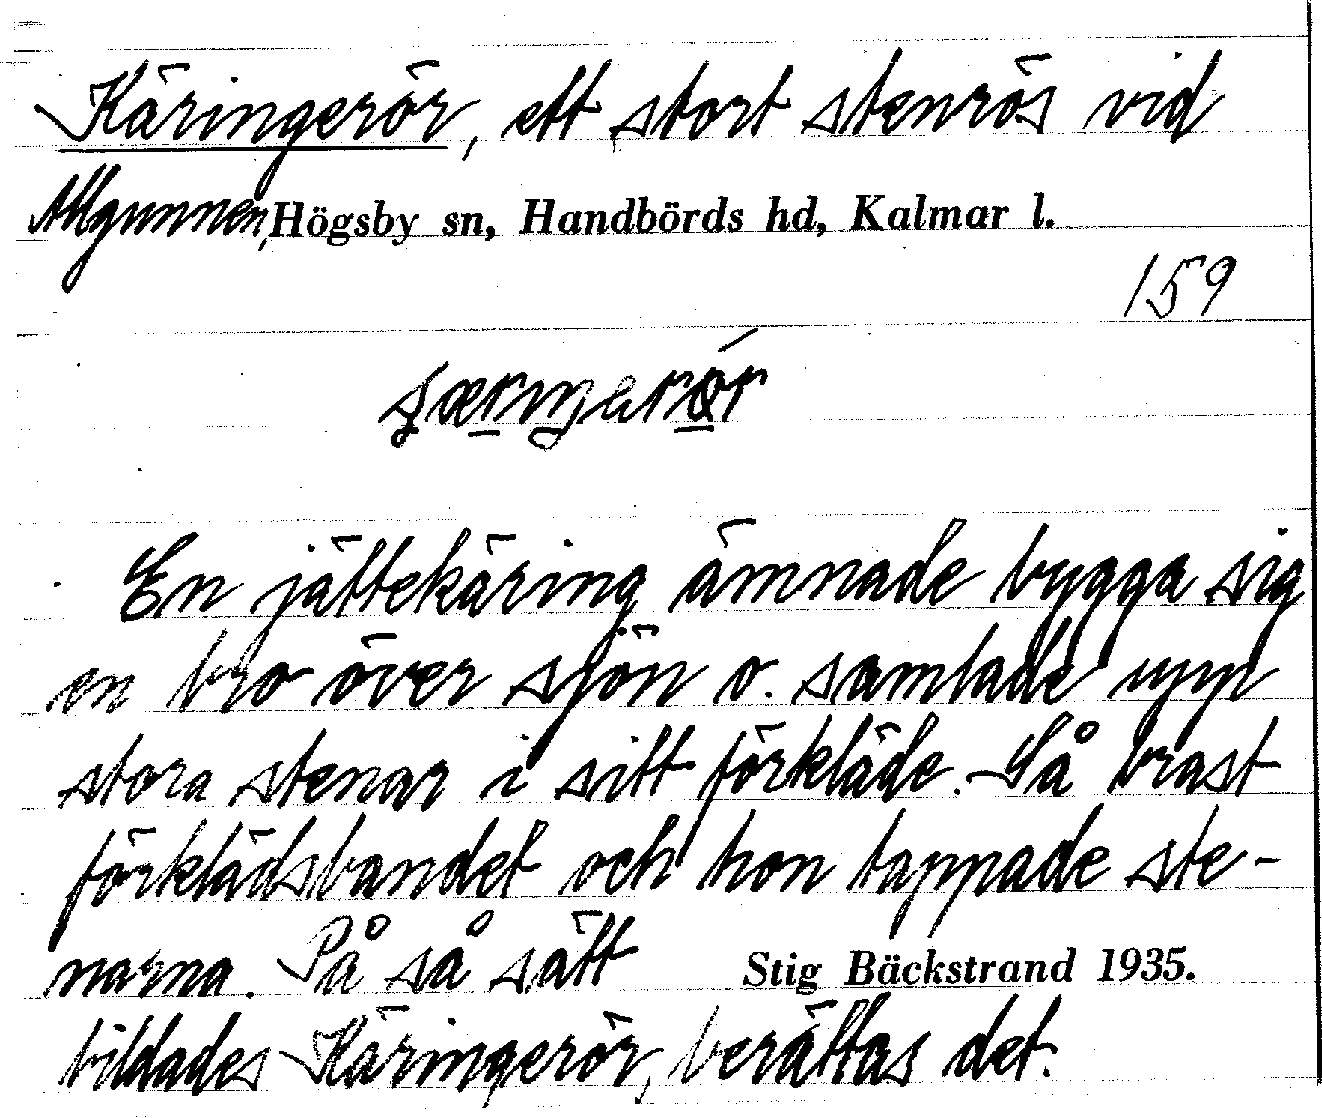 Käringerör, ett stort stenrös vid
Allgunnen, Högsby sn, Handbörds hd, Kalmar l.
159
En jättekäring ämnade bygga sig
en bro över sjön o. samlade upp
stora stenar i sitt förkläde. Så brast
förklädsbandet och hon tappade ste-
narna. På så sätt
Stig Bäckstrand 1935.
bildades Käringerör, berättas det.